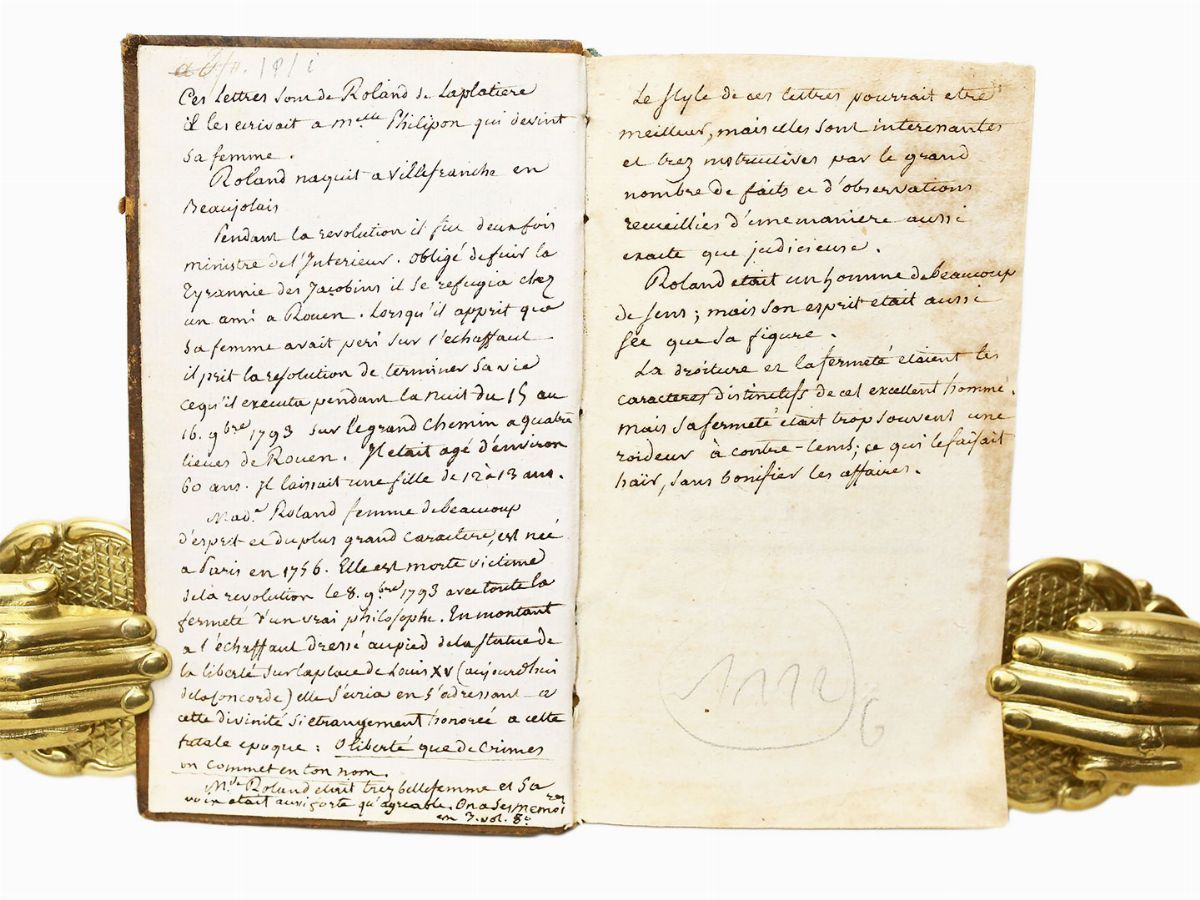 Ces Lettres sont de Roland de Laplatiere
il les ecrivait a melle Philipon qui devint
sa femme.
Roland naquit a Villefranche en
Beaujolais
Pendant la revolution il fut deux fois
ministre de l'Interieur. obligé de fuir la
Tyrannie des Jacobins il se refugia chez
un ami a Rouen. Lorsqu'il apprit que
sa femme avait peri sur l'echaffaut
il prit la resolution de terminer sa vie
ce qu'il executa pendant la nuit du 15 au
16. 9bre 1793 sur le grand chemin a quatre
lieues de Rouen. Il etait agé d'environ
60 ans. Il laissait une fille de 12 à 13 ans.
Made Roland femme de beaucoup
d'esprit et du plus grand caractere, est née
a Paris en 1756. Elle est morte victime
de la revolution le 8. 9bre 1793 avec toute la
fermeté d'un vrai philosophe. En montant
a l'échaffaut dressé au pied de la statue de
la liberté sur la place de Louis XV (aujourdhui
de la Concorde) elle s'écria en s'adressant a
cette divinité si etrangement honorée a cette
fatale epoque : O liberté que de crimes
on commet en ton nom.
Mde Roland etait trez belle femme et sa
voix etait aussi forte qu'agreable. On a ses memoires
en 3. vol. 8o
Le style de ces lettres pourrait etre
meilleur, mais elles sont interessantes
et trez instructives par le grand
nombre de faits et d'observations
recueillies d'une maniere aussi
exacte que judicieuse.
Roland etait un homme de beaucoup
de sens ; mais son esprit etait aussi
sec que sa figure.
La droiture et la fermeté etaient les
caracteres distinctifs de cet excellent homme.
mais sa fermeté etait trop souvent une
roideur à contre-tems ; ce qui le faisait
haïr, sans bonifier les affaires.
1112
6